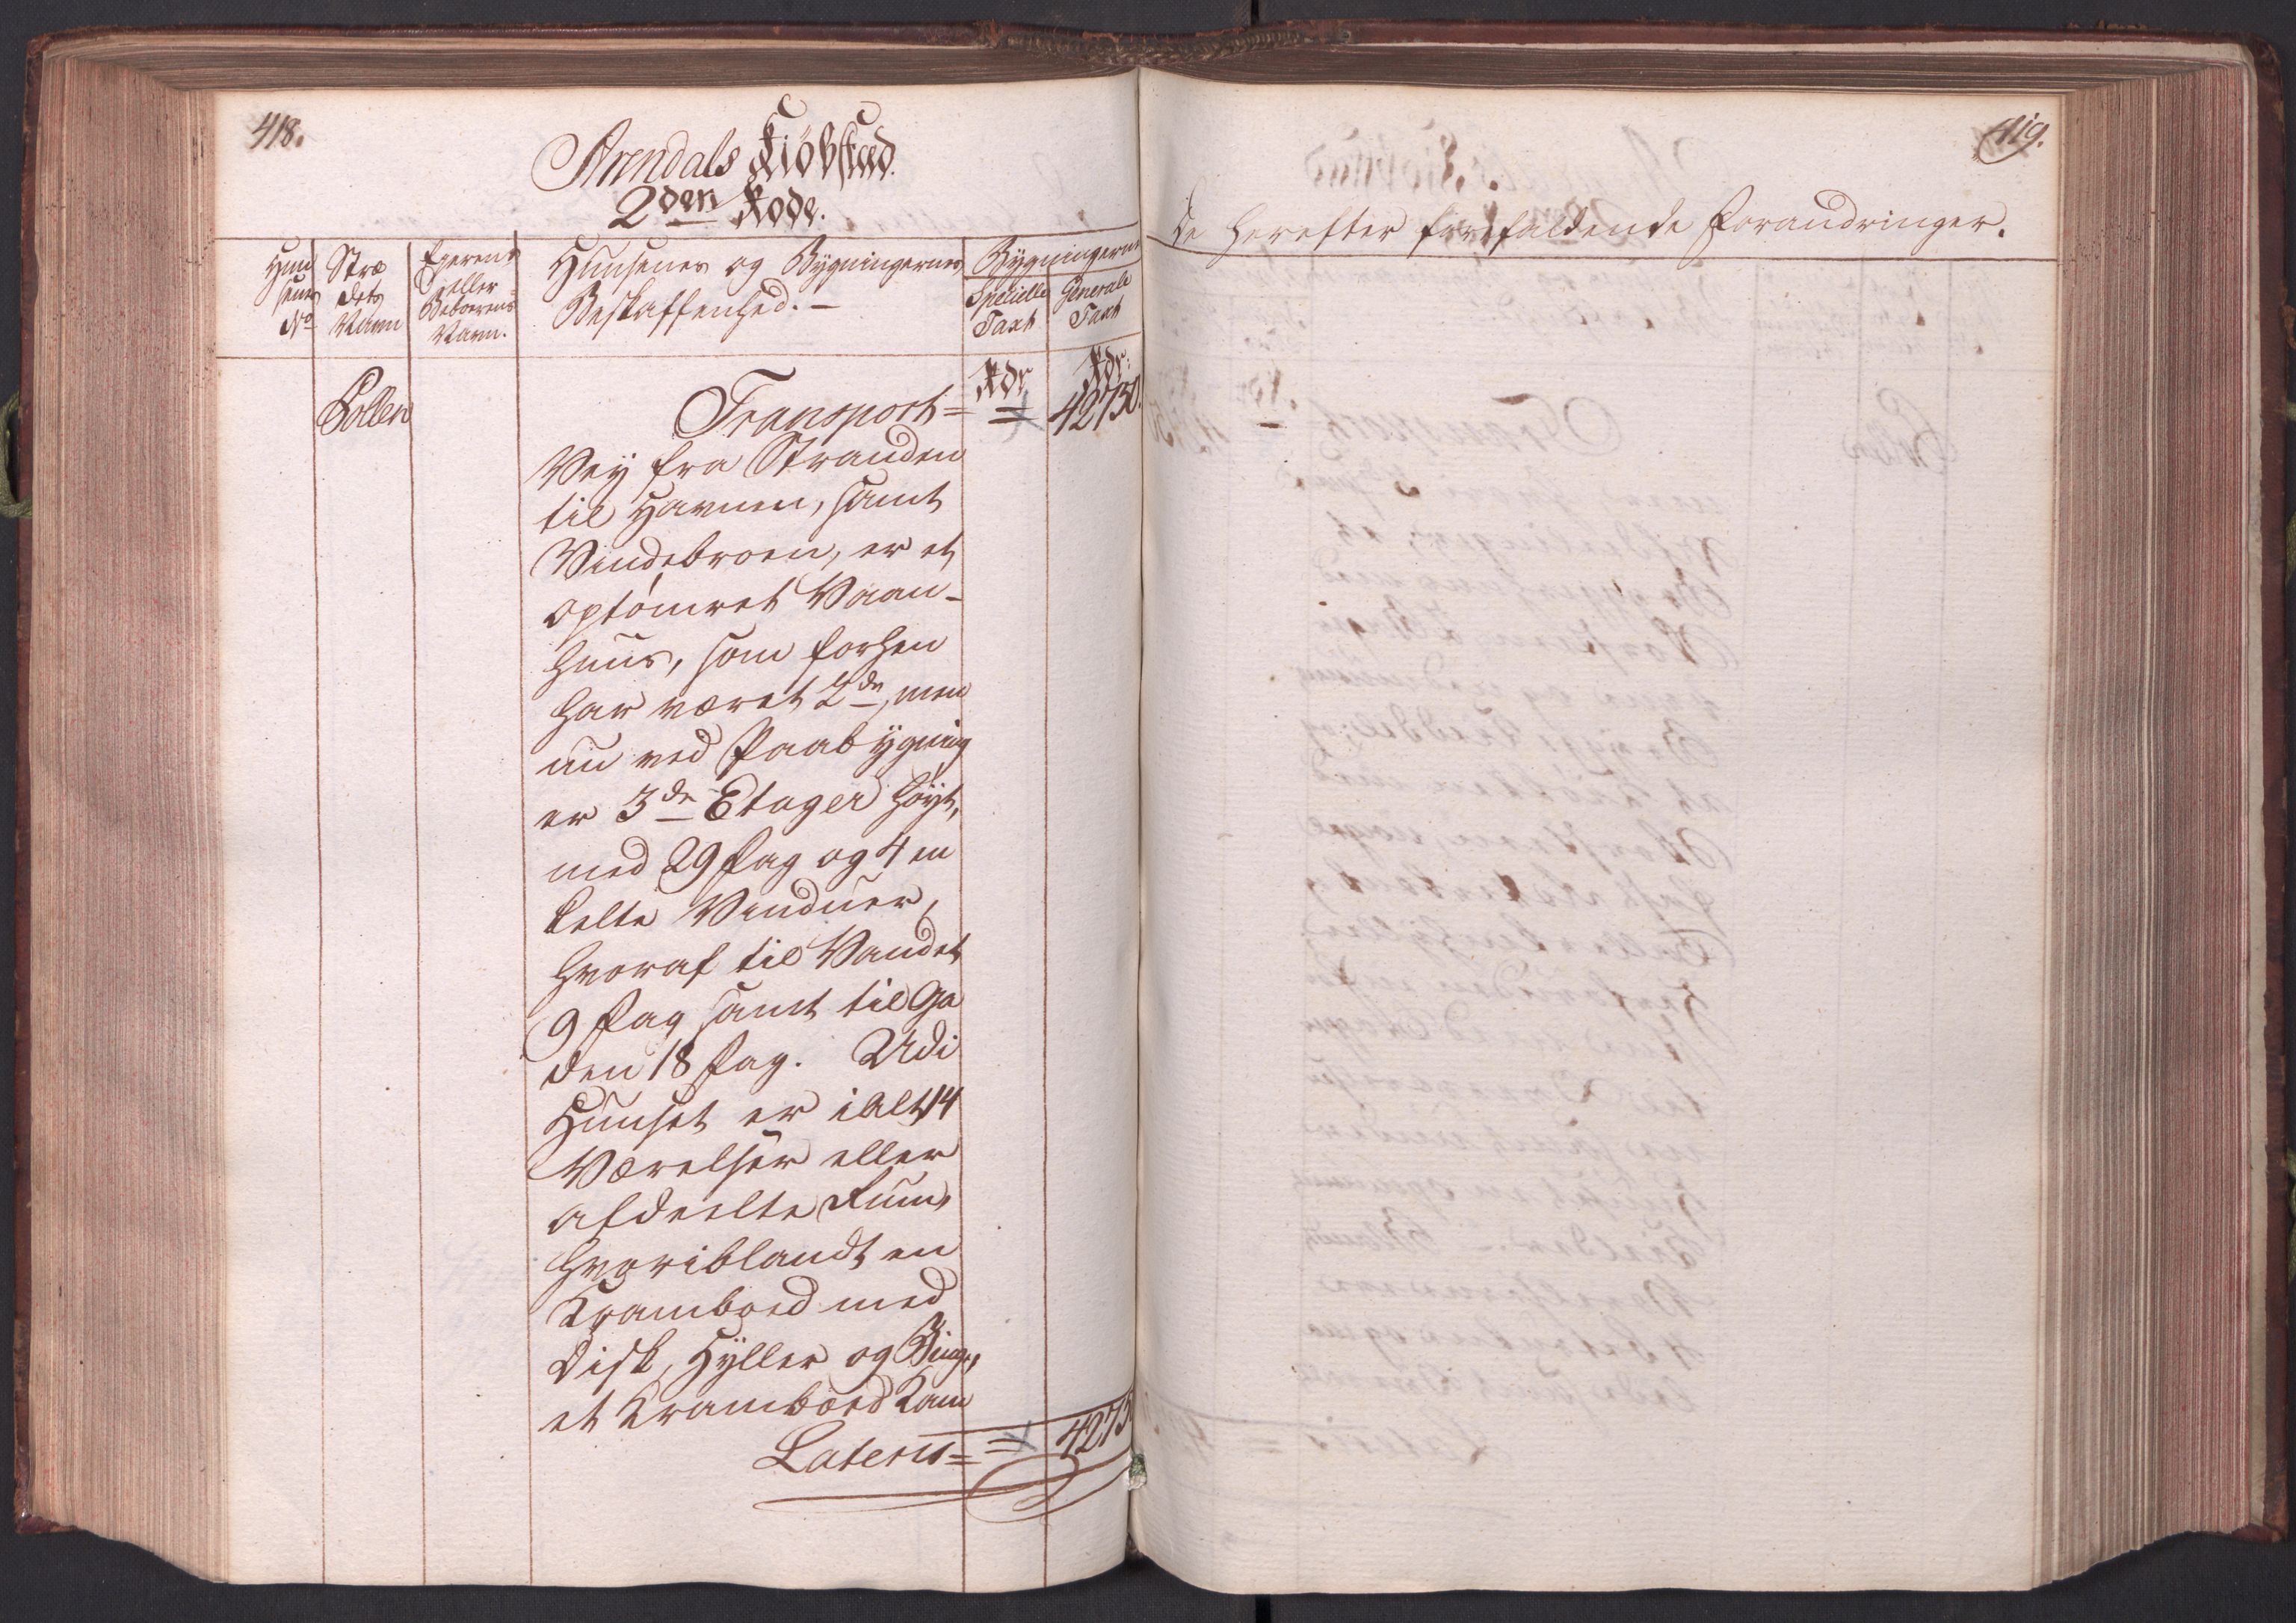 418.
Arendals Kiöbstæd.
2den Rode.
Huu
senes
No
Stræ
dets
Navn
Egerens
eller
Beboerens
Navn.
Huusenes og Bygningernes
Beskaffenhed. -
Bygningernes
Specielle
Taxt
Generale
Taxt
Rdr
Rdr:
Pollen
Transport = = 42750.
Vey fra Stranden
til Havnen, samt
Vindebroen, er et
optömret Vaan-
huus, som forhen
har været 2de, men
nu ved Paabygning
er 3de Etager höyt,
med 29 Fag og 4 en
kelte Vinduer,
hvoraf til Vandet
9 Fag samt til Ga
den 18 Fag. Udi
Huuset er i alt 14
Værelser eller
afdeelte Rum,
hvoriblandt en
Kramboed med
Disk, Hyller og Binge,
et Kramboed Kam
Lateris = = 4275
419.
De herefter forefaldende Forandringer.